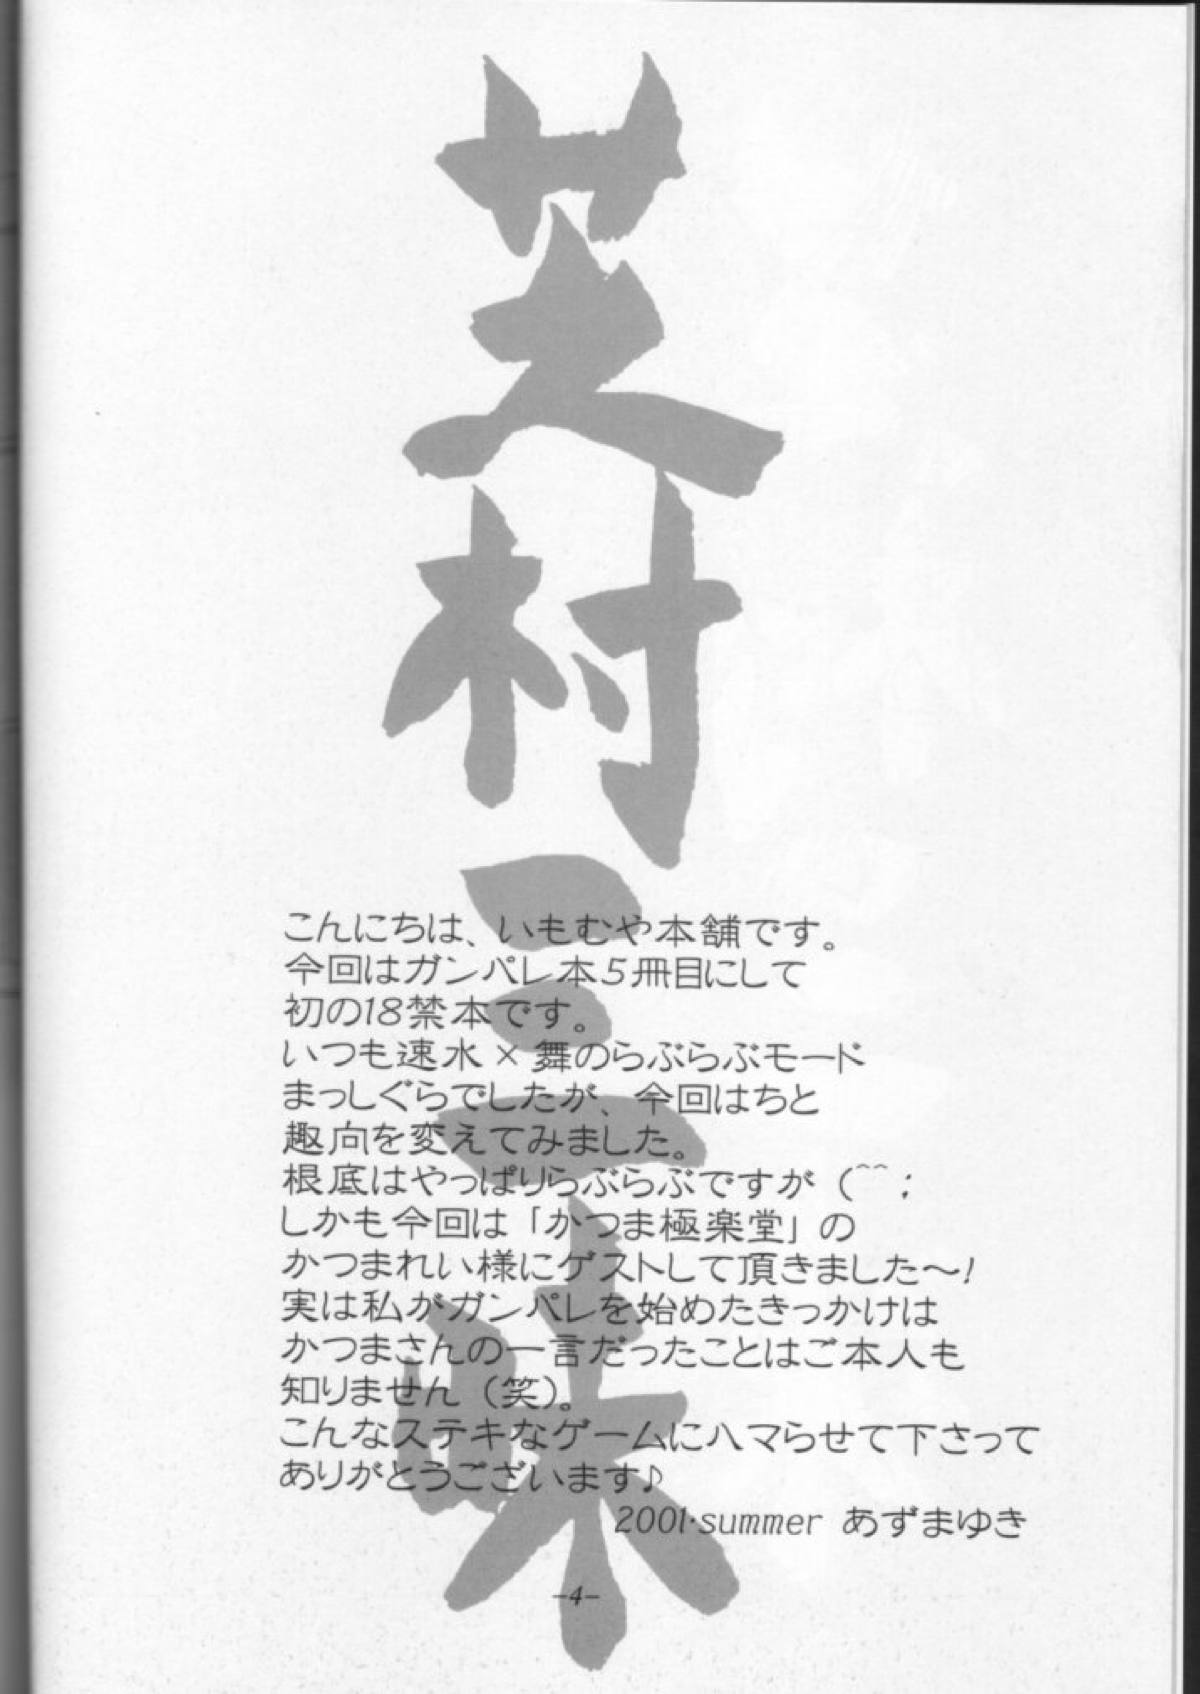 芝村三昧
こんにちは、いもむや本舗です。
今回はガンパレ本5冊目にして
初の18禁本です。
いつも速水×舞のらぶらぶモード
まっしぐらでしたが、今回はちと
趣向を変えてみました。
根底はやっぱりらぶらぶですが(^^;
しかも今回は「かつま極楽堂」の
かつまれい様にゲストして頂きました〜!
実は私がガンパレを始めたきっかけは
かつまさんの一言だったことはご本人も
知りません(笑)。
こんなステキなゲームにハマらせて下さって
ありがとうございます♪
2001·summer あずまゆき
-4-